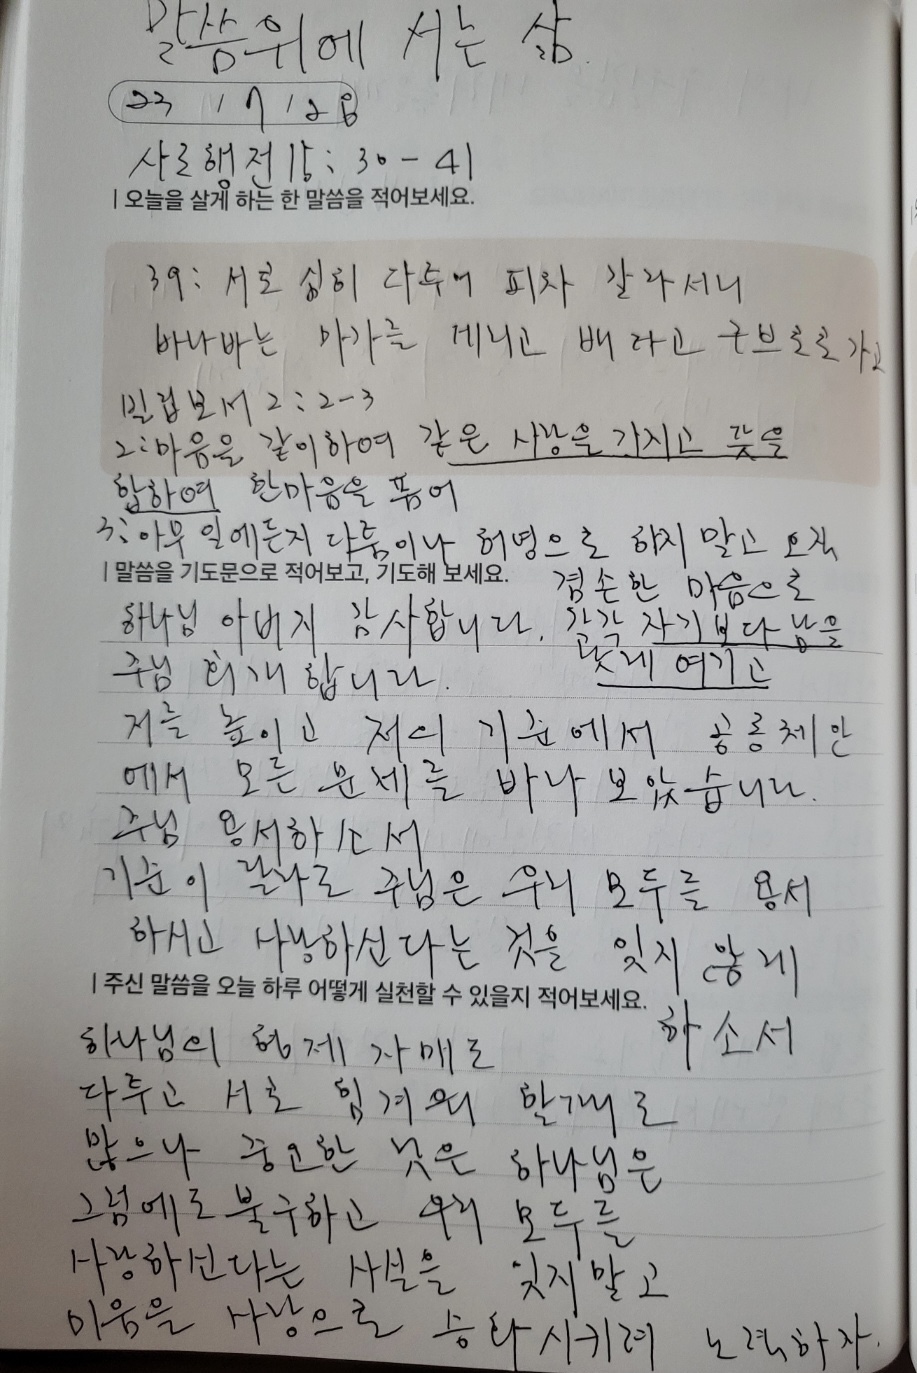 말씀위에 서는 삶.
23 1월 12일
사도행전 15: 30 - 41
| 오늘을 살게 하는 한 말씀을 적어보세요.
39: 서로 심히 다투어 피차 갈라서니
바나바는 마가를 데리고 배 타고 구브로로 가고
빌립보서 2:2-3
2:마음을 같이하여 같은 사랑을 가지고 뜻을
합하여 한마음을 품어
3: 아무 일에든지 다툼이나 허영으로 하지 말고 오직
겸손한 마음으로
각각 자기보다 남을
낫게 여기고
| 말씀을 기도문으로 적어보고, 기도해 보세요.
하나님 아버지 감사합니다.
주님 회개합니다.
저를 높이고 저의 기준에서 공동체안
에서 모든 문제를 바라 보았습니다.
주님 용서하소서
기준이 달라도 주님은 우리 모두를 용서
하시고 사랑하신다는 것을 잊지 않게
하소서
| 주신 말씀을 오늘 하루 어떻게 실천할 수 있을지 적어보세요.
하나님의 형제 자매도
다투고 서로 힘겨워 할때도
많으나 중요한 것은 하나님은
그럼에도 불구하고 우리 모두를
사랑하신다는 사실을 잊지말고
미움을 사랑으로 승화시키려 노력하자.